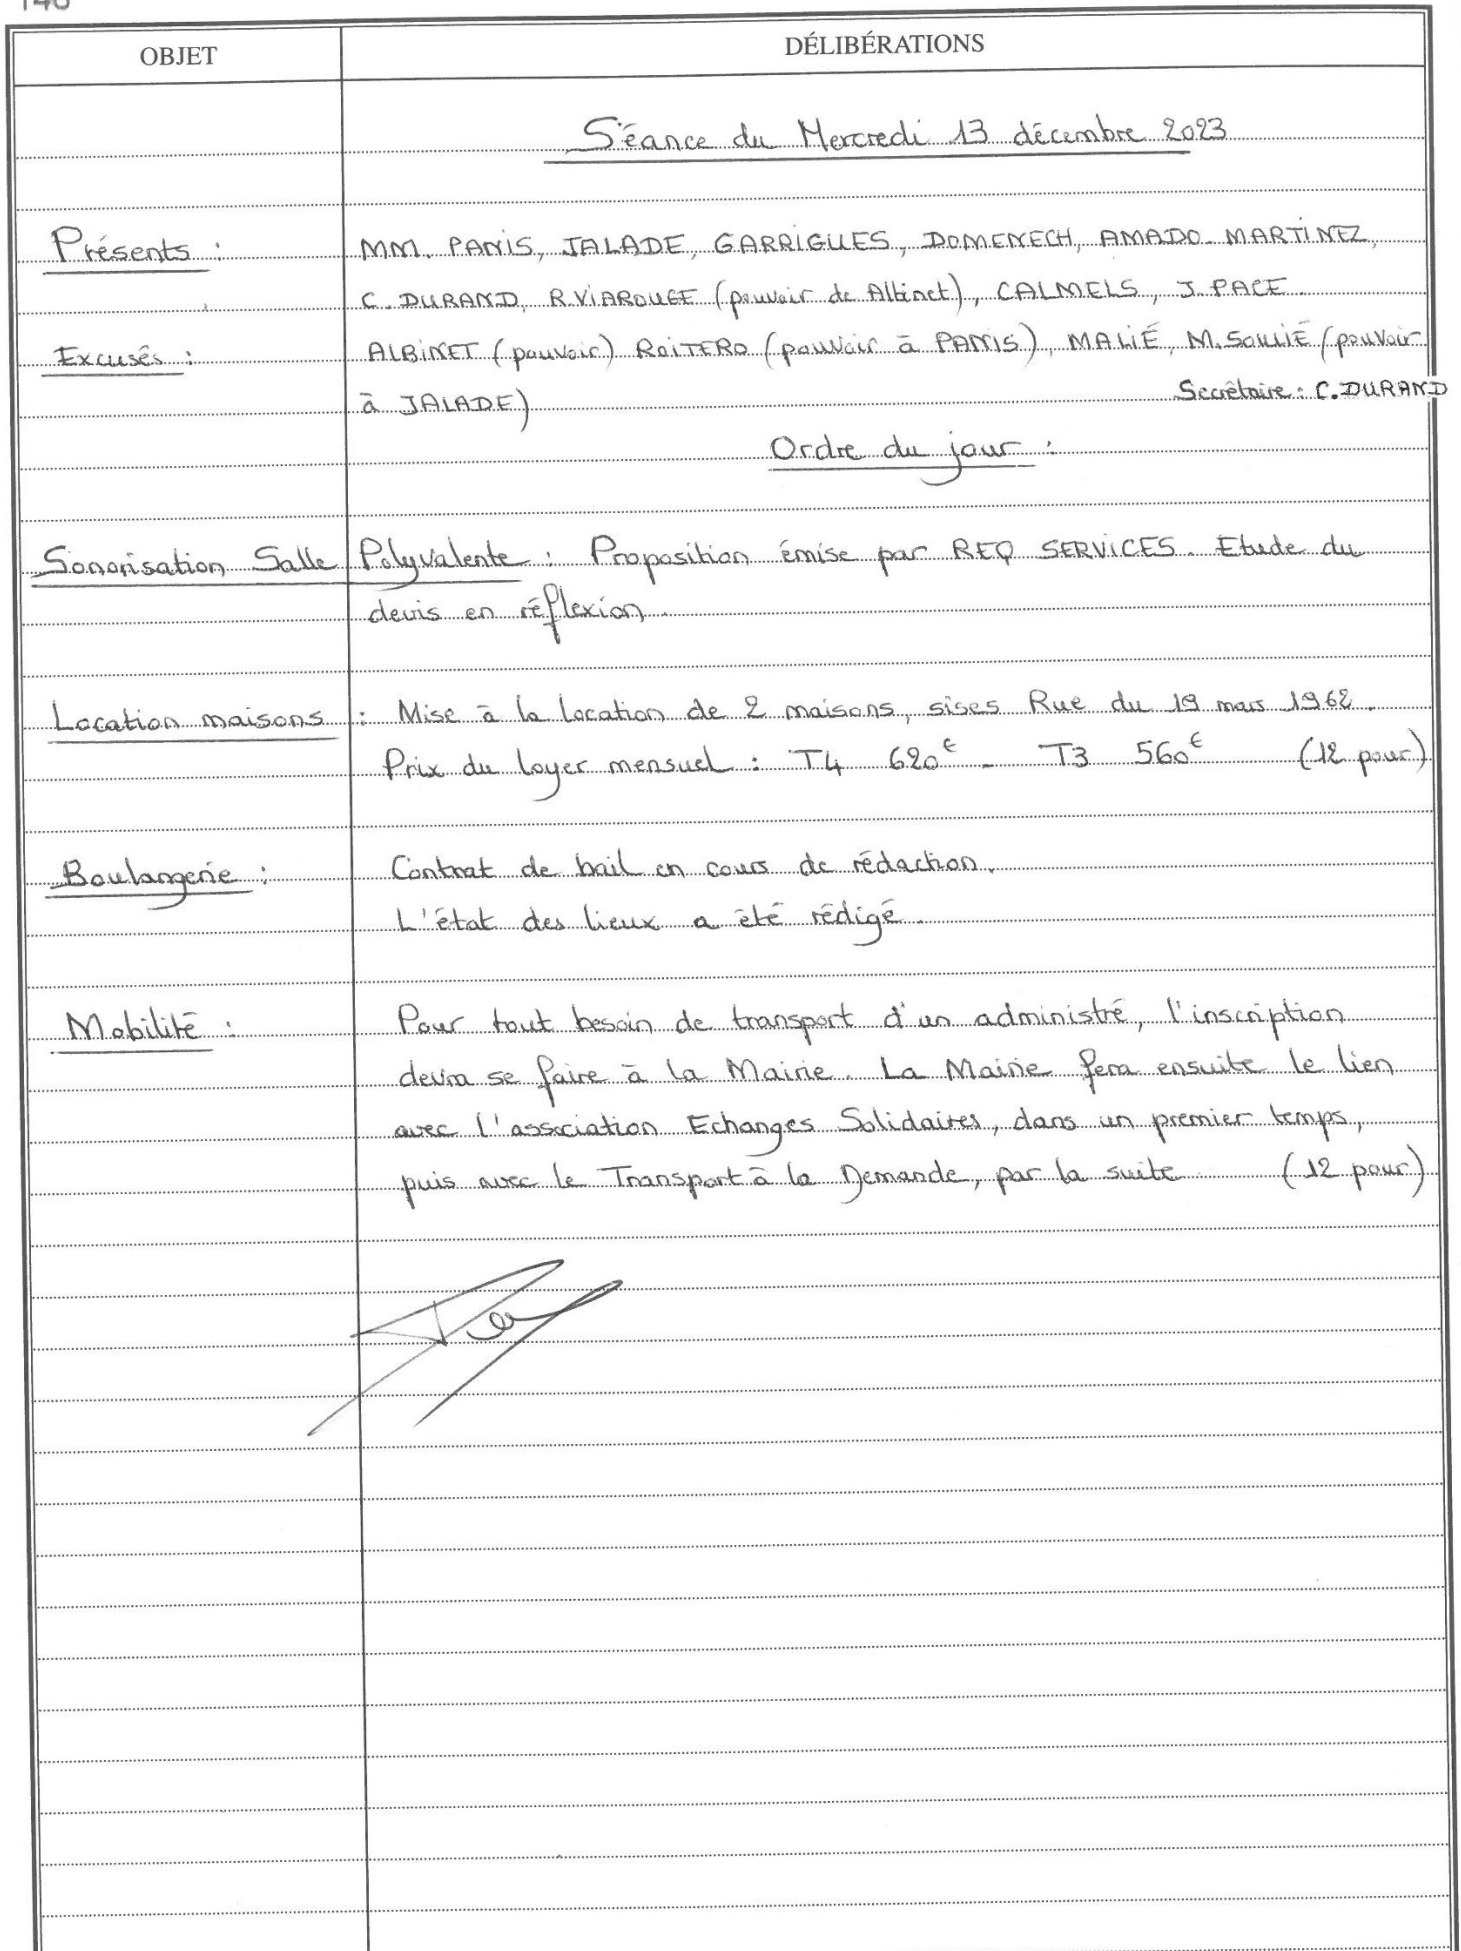 OBJET DÉLIBÉRATIONS
Séance du Mercredi 13 décembre 2023
Présents : MM. PANIS, JALADE, GARRIGUES, DOMENECH, AMADO-MARTINEZ,
C. DURAND, R.VIAROUGE (pouvoir de Albinet), CALMELS, J. PACE.
Excusés : ALBINET (pouvoir) ROITERO (pouvoir à PANIS), MALIÉ, M. SOULIÉ (pouvoir
à JALADE) Secrétaire : C. DURAND
Ordre du jour :
Sonorisation Salle Polyvalente : Proposition émise par REQ SERVICES. Etude du
devis en réflexion.
Location maisons : Mise à la location de 2 maisons, sises Rue du 19 mars 1962.
Prix du loyer mensuel : T4 620€ - T3 560€ (12 pour)
Boulangerie : Contrat de bail en cours de rédaction.
L'état des lieux a été rédigé.
Mobilité : Pour tout besoin de transport d'un administré, l'inscription
devra se faire à la Mairie. La Mairie fera ensuite le lien
avec l'association Echanges Solidaires, dans un premier temps,
puis avec le Transport à la Demande, par la suite (12 pour)